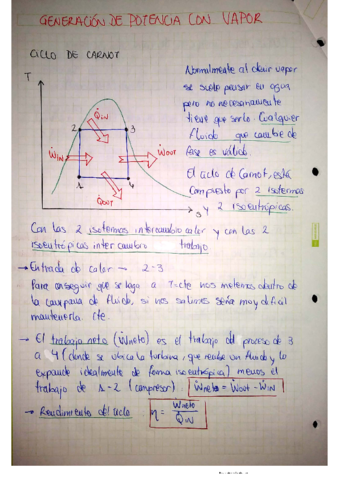 GENERACIÓN DE POTENCIA CON VAPOR
CICLO DE CARNOT
T
2
3
1
4
s
Q̇IN
ẆIN
ẆOUT
Q̇OUT
Normalmente al decir vapor
se suele pensar en agua,
pero no necesariamente
tiene que serlo. Cualquier
Fluido que cambie de
fase es válido.
El ciclo de Carnot, está
compuesto por 2 isotermas
y 2 isoentrópicas.
Con las 2 isotermas intercambio calor y con las 2
isoentrópicas intercambio trabajo
→ Entrada de calor → 2-3
Para conseguir que se haga a T=cte nos metemos dentro de
la campana de fluido, si nos salimos sería muy difícil
mantenerla cte.
→ El trabajo neto (Ẇneto) es el trabajo del proceso de 3
a 4 (donde se ubica la turbina, que recibe un fluido y lo
expande idealmente de forma isoentrópica) menos el
trabajo de 1-2 (compresor) Ẇneto = Ẇout - Ẇin
→ Rendimiento del ciclo η = Ẇneto / Q̇IN